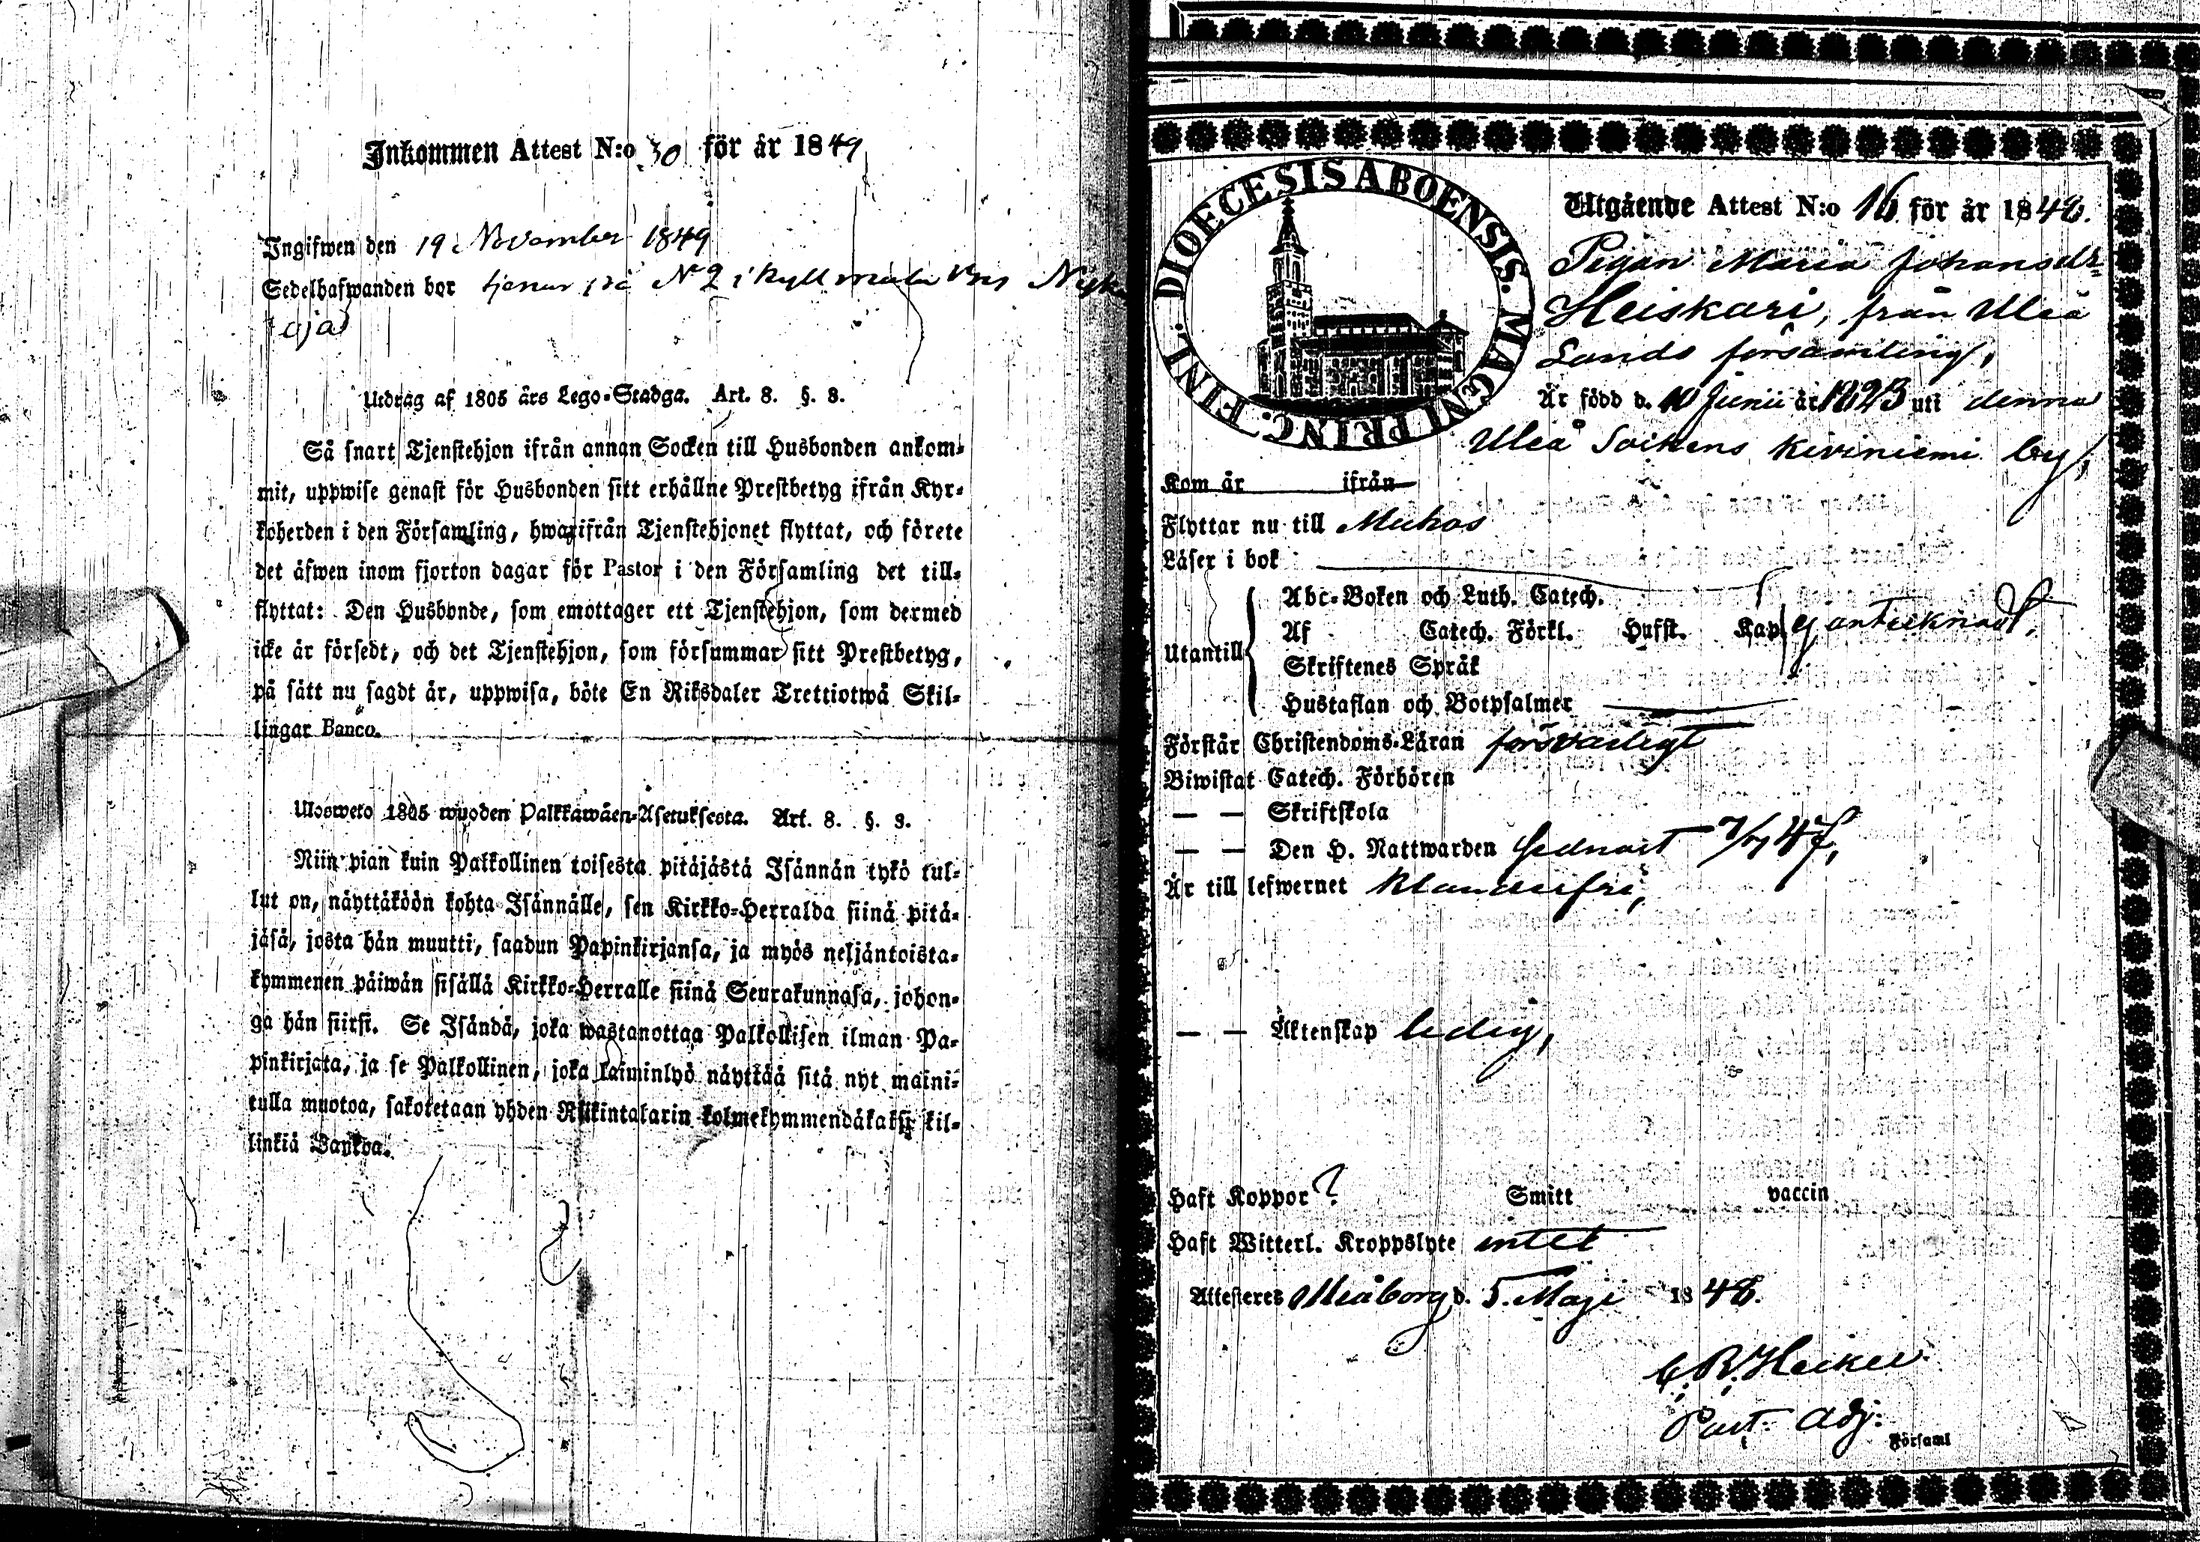 Inkommen Attest N:o 30 för år 1849
Ingifwen den 19 November 1849
Sedelhafwanden bor tjenar på N 2 i Kyllmälä
Utdrag af 1805 års Lego-Stadga. Art. 8. §. 8.
Så snart Tjenstehjon ifrån annan Socken till Husbonden ankom-
mit, uppwise genast för Husbonden sitt erhållne Prestbetyg ifrån Kyr-
koherden i den Församling, hwarifrån Tjenstehjonet flyttat, och förete
det äfwen inom fjorton dagar för Pastor i den Församling det till-
flyttat: Den Husbonde, som emottager ett Tjenstehjon, som dermed
icke är försedt, och det Tjenstehjon, som försummar sitt Prestbetyg,
på sätt nu sagdt är, uppwisa, böte En Riksdaler Trettiotwå Skil-
lingar Banco.
Ulosweto 1805 wuoden Palkkawäen-Asetuksesta. Art. 8. §. 8.
Niin pian kuin Palkollinen toisesta pitäjästä Isännän tykö tul-
lut on, näyttäköön kohta Isännälle, sen Kirkko-Herralda siinä pitä-
jäsä, josta hän muutti, saadun Papinkirjansa, ja myös neljäntoista-
kymmenen päiwän sisällä Kirkko-Herralle siinä Seurakunnasa, johon-
ga hän siirsi. Se Isändä, joka wastanottaa Palkollisen ilman Pa-
pinkirjata, ja se Palkollinen, joka laiminlyö näyttää sitä nyt maini-
tulla muotoa, sakotetaan yhden Riikintalarin kolmekymmendäkaksi kil-
linkiä Bankoa.
DIOECESIS ABOENSIS. MAGNI PRINC. FINL.
Utgående Attest N:o 16 för år 1848.
Pigan Maria Johansdr
Heiskari, från Uleå
Lands församling,
Är född d. 10 Junii år 1823 uti denna
Uleå Sockens Kiviniemi by,
Kom år ifrån
Flyttar nu till Muhos
Läser i bok
Abc-Boken och Luth. Catech.
Utantill Af Catech. Förkl. Hufst. Kap. ej antecknadt.
Skriftenes Språk
Hustaflan och Botpsalmer
Förstår Christendoms-Läran försvarligt
Biwistat Catech. Förhören
— — Skriftskola
— — Den H. Nattwarden sednast 7/11 47,
Är till lefwernet klanderfri,
— — Äktenskap ledig,
Haft Koppor ? Smitt vaccin
Haft Witterl. Kroppslyte intet
Attesteres Uleåborg d. 5. Maji 1848.
C. R. Heikel
Past. Adj.
Församl